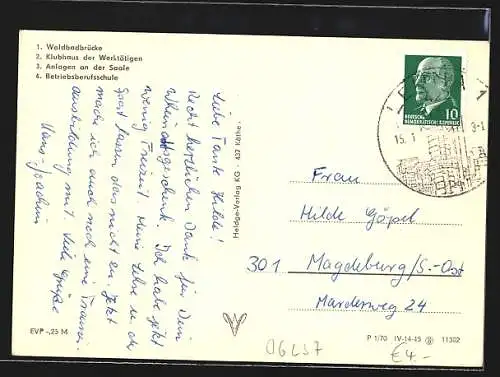 1. Waldbadbrücke
2. Klubhaus der Werktätigen
3. Anlagen an der Saale
4. Betriebsberufsschule
Liebe Tante Hilde!
Recht herzlichen Dank für Dein
Weihnachtsgeschenk. Ich habe jetzt
wenig Freizeit. Meine Lehre u. der
Sport lassen das nicht zu. Jetzt
mache ich auch noch eine Trainer-
ausbildung mit. Viele Grüße
Hans-Joachim
EVP -,25 M
Heldge-Verlag KG · 437 Köthen
10
DEUTSCHE
DEMOKRATISCHE REPUBLIK
LEUNA 1
15. 1
Frau
Hilde Göpel
301 Magdeburg/S.-Ost
Marderweg 24
P 1/70 IV-14-45 11302
06237
€ 4.-